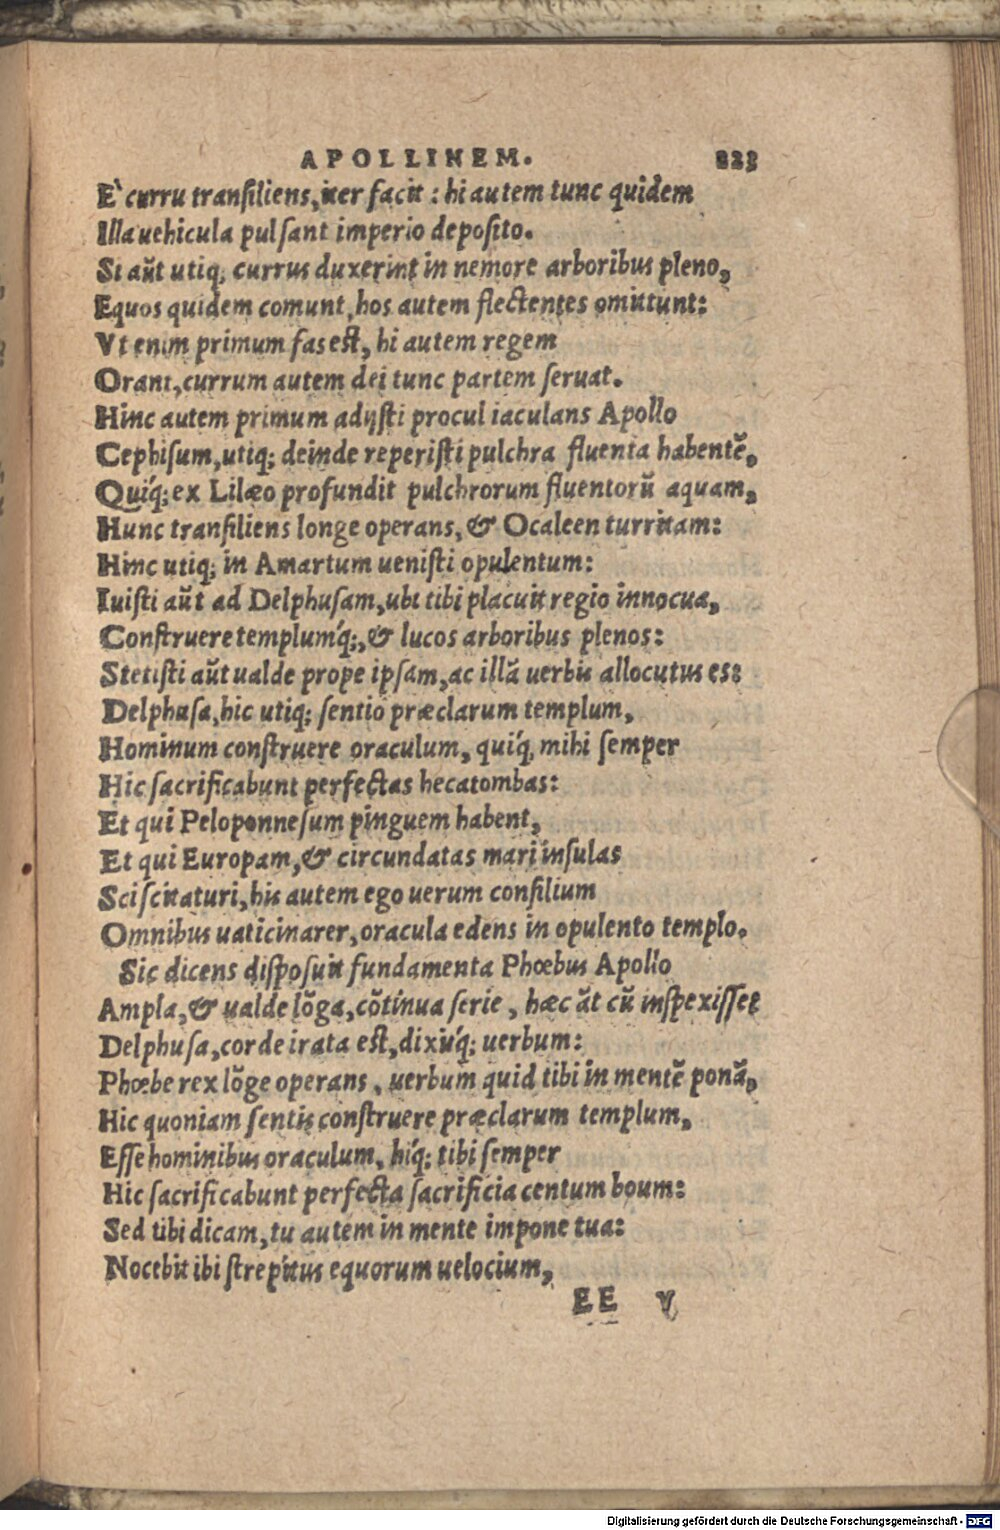 APOLLINEM. 223
E' curru transiliens, iter facit : hi autem tunc quidem
Illa uehicula pulsant imperio deposito.
Si aũt utiq; currus duxerint in nemore arboribus pleno,
Equos quidem comunt, hos autem flectentes omittunt:
Vt enim primum fas est, hi autem regem
Orant, currum autem dei tunc partem seruat.
Hinc autem primum adijsti procul iaculans Apollo
Cephisum, utiq; deinde reperisti pulchra fluenta habentẽ,
Quíq; ex Lilæo profundit pulchrorum fluentorũ aquam,
Hunc transiliens longe operans, & Ocaleen turritam:
Hinc utiq; in Amartum uenisti opulentum:
Iuisti aũt ad Delphusam, ubi tibi placuit regio innocua,
Construere templumq́;, & lucos arboribus plenos:
Stetisti aũt ualde prope ipsam, ac illã uerbis allocutus es:
Delphusa, hic utiq; sentio præclarum templum,
Hominum construere oraculum, quíq, mihi semper
Hic sacrificabunt perfectas hecatombas:
Et qui Peloponnesum pinguem habent,
Et qui Europam, & circundatas mari insulas
Sciscitaturi, his autem ego uerum consilium
Omnibus uaticinarer, oracula edens in opulento templo.
Sic dicens disposuit fundamenta Phœbus Apollo
Ampla, & ualde lõga, cõtinua serie, hæc ãt cũ inspexisset
Delphusa, corde irata est, dixitq́; uerbum:
Phœbe rex lõge operans, uerbum quid tibi in mentẽ ponã,
Hic quoniam sentis construere præclarum templum,
Esse hominibus oraculum, híq; tibi semper
Hic sacrificabunt perfecta sacrificia centum boum:
Sed tibi dicam, tu autem in mente impone tua:
Nocebit ibi strepitus equorum uelocium,
EE v
Digitalisierung gefördert durch die Deutsche Forschungsgemeinschaft - DFG